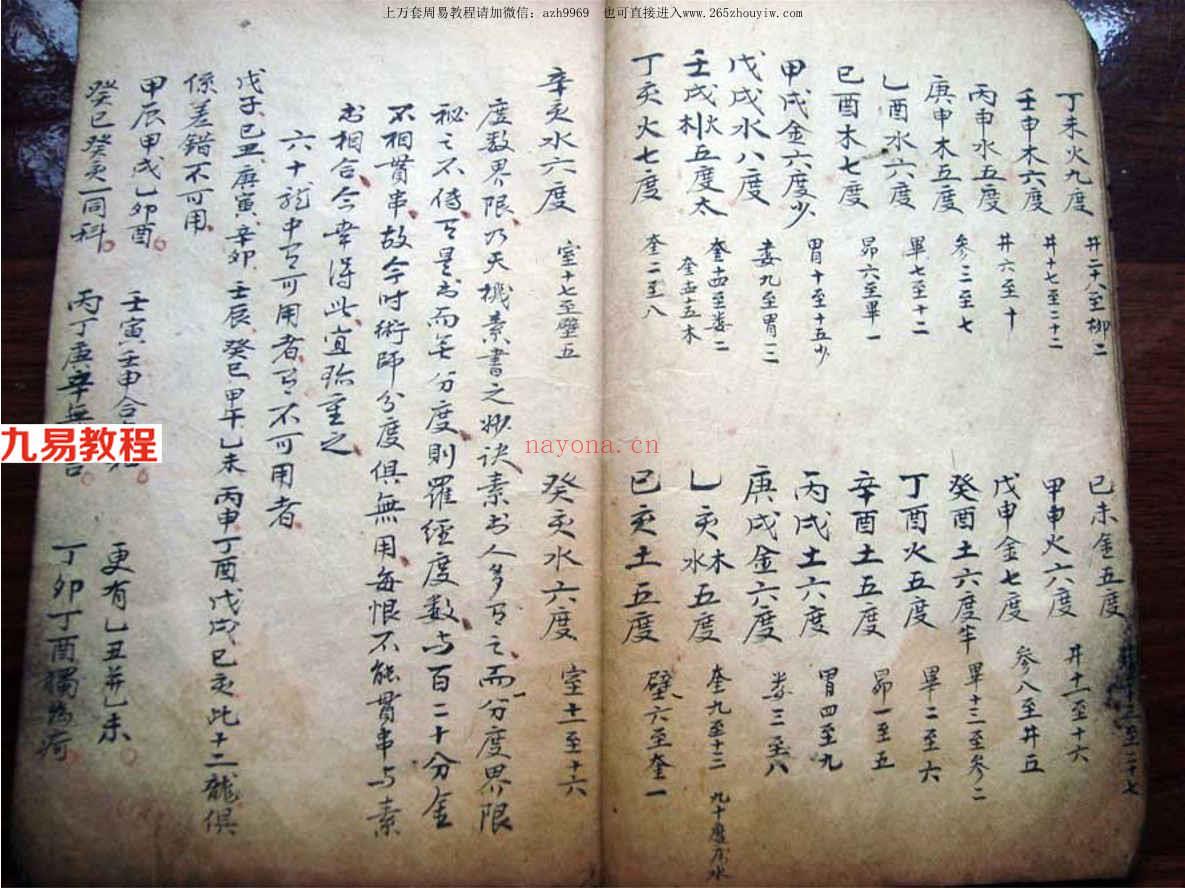 上万套周易教程请加微信：azh9969　也可直接进入www.265zhouyiw.com
丁未火九度　井二十八至柳二　己未金五度　至二十七
壬申木六度　井十七至二十二　甲申火六度　井十一至十六
丙申水五度　井六至十　戊申金七度　参八至井五
庚申木五度　参三至七　癸酉土六度半　畢十三至参二
乙酉水六度　畢七至十二　丁酉火五度　畢二至六
己酉木七度　昴六至畢一　辛酉土五度　昴一至五
甲戌金六度少　胃十至十五少　丙戌土六度　胃四至九
戊戌水八度　婁九至胃二　庚戌金六度　娄三至八
壬戌火木五度太　奎十四至娄二　奎十五木　乙亥木水五度　奎九至十三　九十應灰水
丁亥火七度　奎二至八　己亥土五度　壁六至奎一
辛亥水六度　室十七至壁五　癸亥水六度　室十一至十六
度数界限乃天機素書之妙诀素书人多有之而分度界限
秘之不傳有是书而無分度則羅經度數与百二十分金
不相貫串故今时術師分度俱無用每恨不能貫串与素
书相合今幸得此宜珍重之
六十龍中有可用者有不可用者
戊子己丑庚寅辛卯壬辰癸巳甲午乙未丙申丁酉戊戌己亥此十二龍俱
係差錯不可用
甲辰甲戌乙卯酉　壬寅壬申合　更有乙丑并乙未
癸巳癸亥一同科　丙丁庚辛無　丁卯丁酉獨為奇
九易教程
nayona.cn